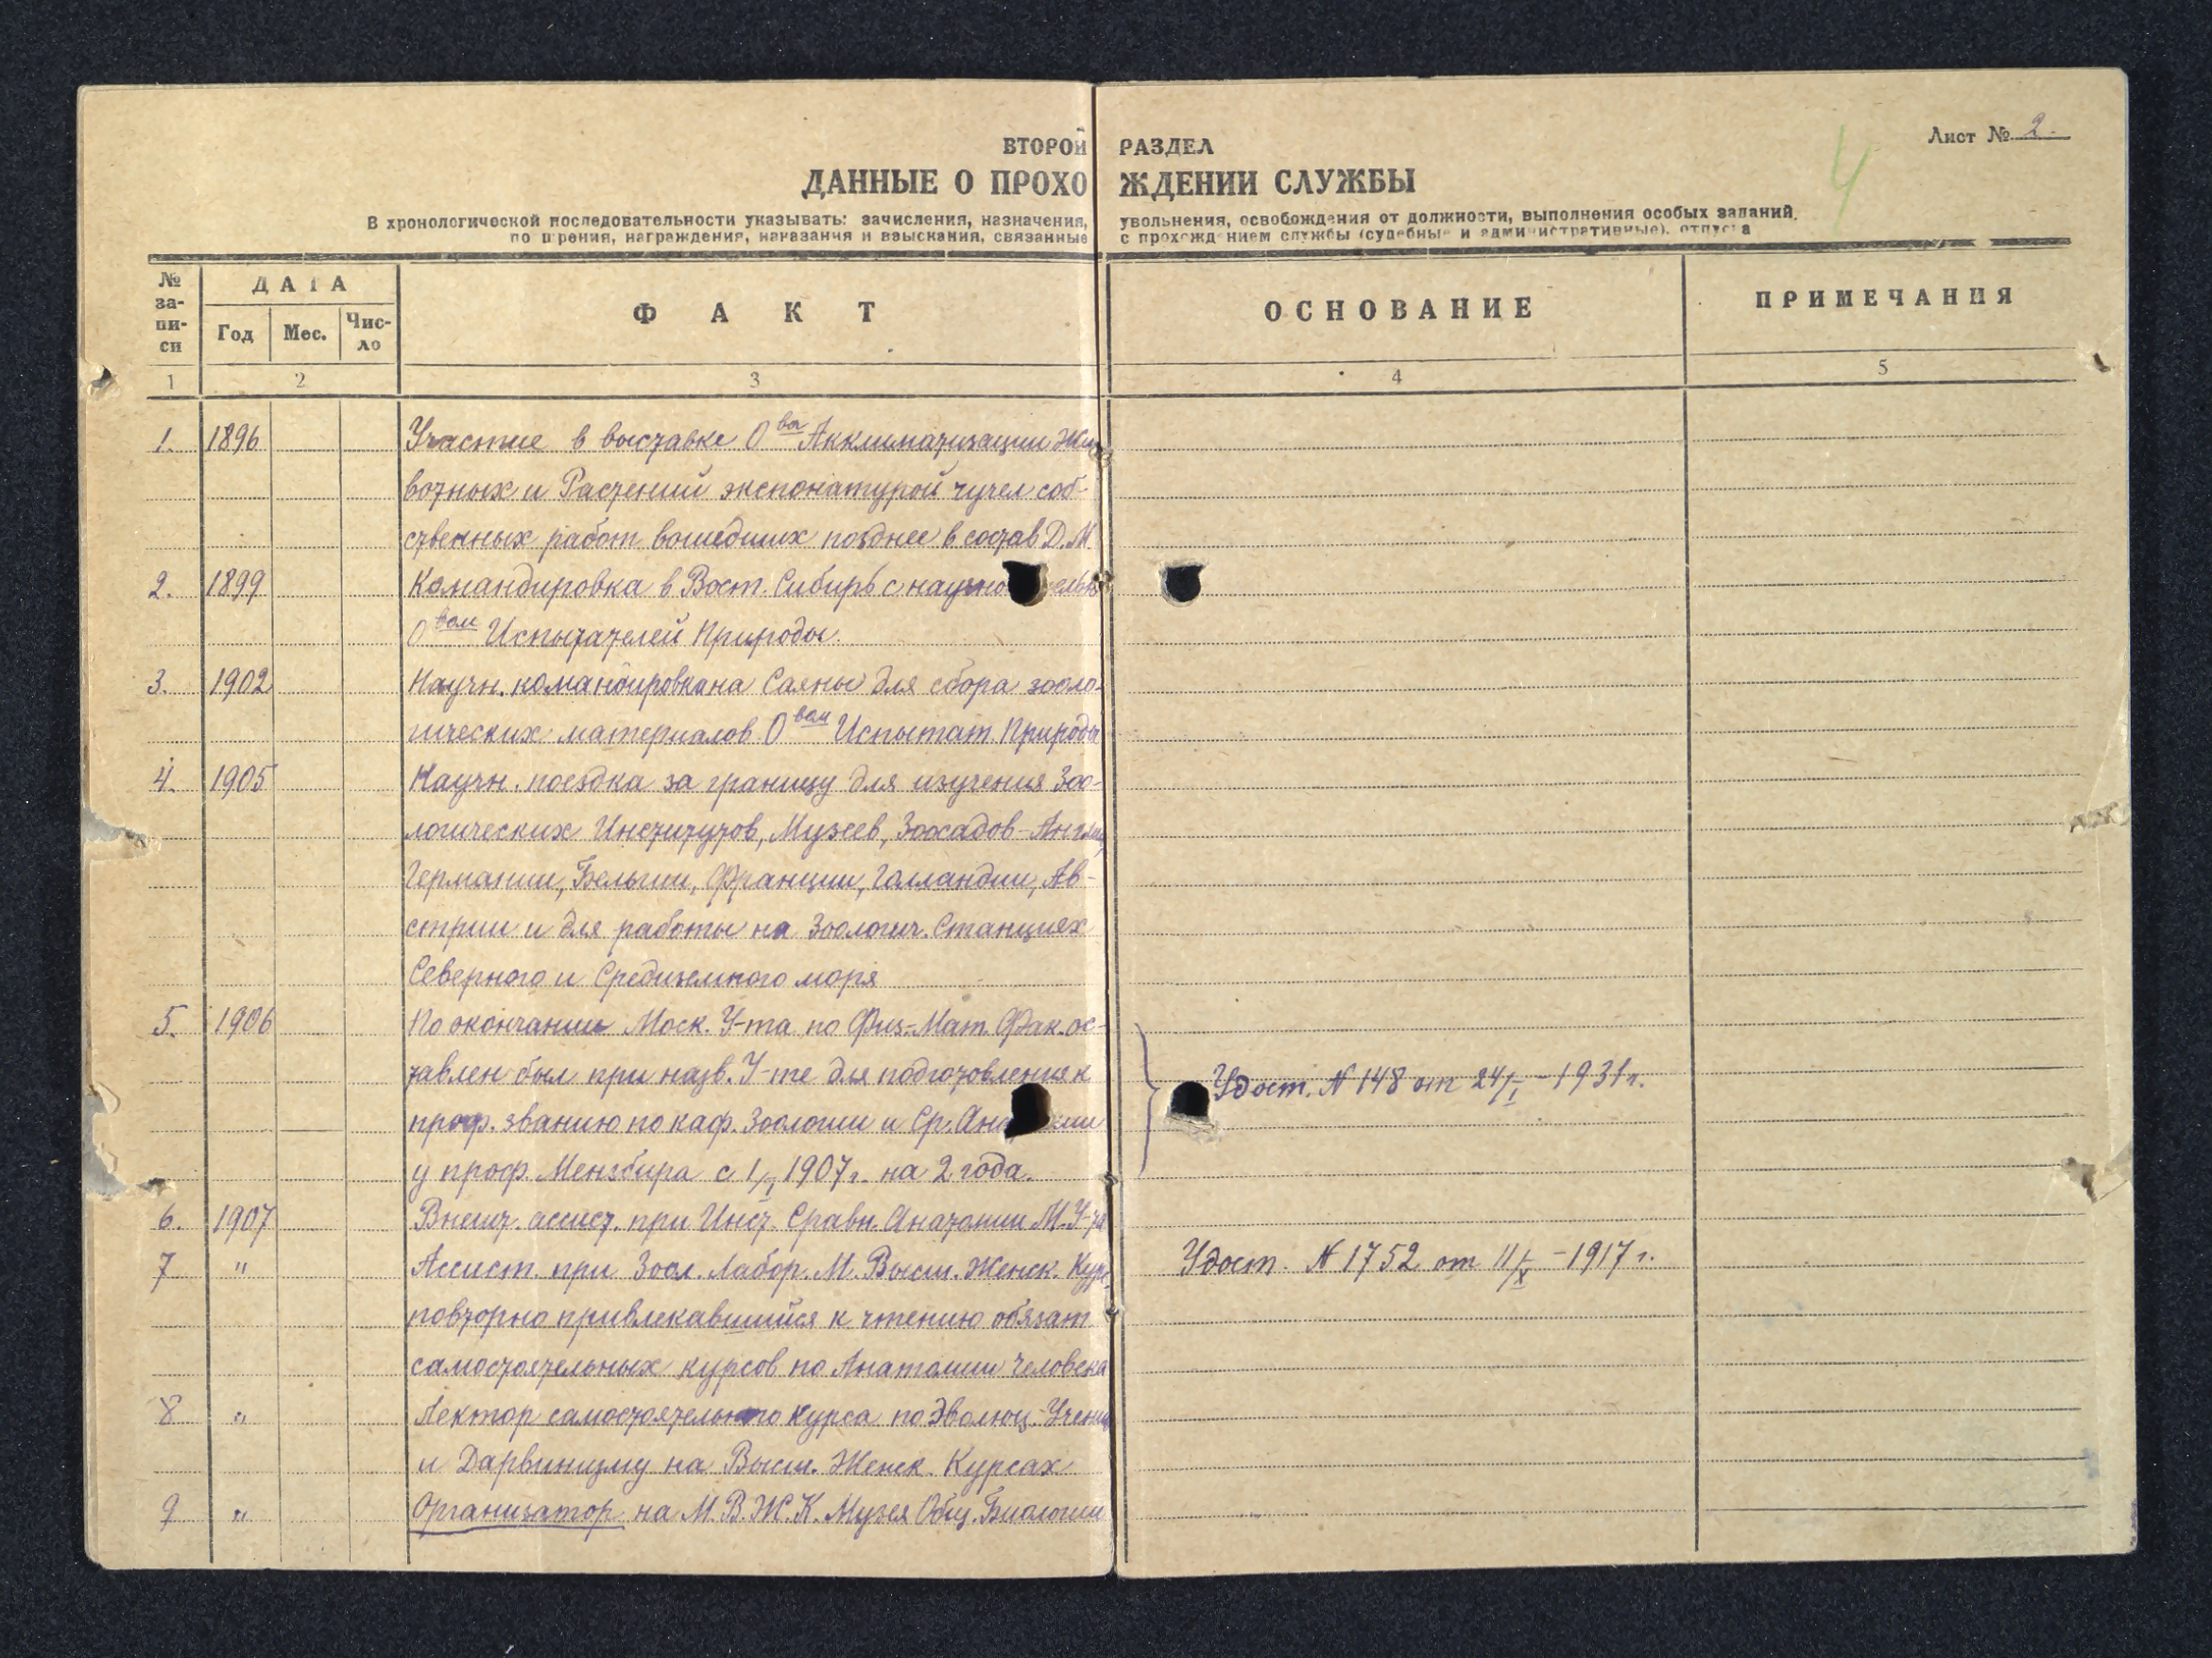 Лист № 2.
4
ВТОРОЙ РАЗДЕЛ
ДАННЫЕ О ПРОХОЖДЕНИИ СЛУЖБЫ
В хронологической последовательности указывать: зачисления, назначения, увольнения, освобождения от должности, выполнения особых заданий,
поощрения, награждения, наказания и взыскания, связанные с прохождением службы (судебные и административные), отпуска
№ записи
ДАТА
Год Мес. Число
ФАКТ
ОСНОВАНИЕ
ПРИМЕЧАНИЯ
1 2 3 4 5
1. 1896 Участие в выставке О ва Акклиматизации Жи
вотных и Растений экспонатурой чучел соб-
ственных работ вошедших позднее в состав Д. М.
2. 1899 Командировка в Вост. Сибирь с научно
О вом Испытателей Природы.
3. 1902 Научн. командировка на Саяны для сбора зооло-
гических материалов О вом Испытат. Природы
4. 1905 Научн. поездка за границу для изучения Зоо-
логических Институтов, Музеев, Зоосадов - Англии,
Германии, Бельгии, Франции, Голландии, Ав-
стрии и для работы на Зоологич. Станциях
Северного и Средиземного моря
5. 1906 По окончании Моск. У-та по Физ-Мат. Фак. ос-
тавлен был при назв. У-те для подготовления к
Удост. N 148 от 24/I - 1931 г.
проф. званию по каф. Зоологии и Ср. Ана
у проф. Мензбира с 1/I 1907 г. на 2 года.
6. 1907 Внешт. ассист. при Инст. Сравн. Анатомии М. У-та
7 " Ассист. при Зоол. Лабор. М. Высш. Женск. Курс. Удост. N 1752 от 11/X - 1917 г.
повторно привлекавшийся к чтению обязат.
самостоятельных курсов по Анатомии Человека
8 " Лектор самостоятельного курса по Эволюц. Учению
и Дарвинизму на Высш. Женск. Курсах
9 " Организатор на М. В. Ж. К. Музея Общ. Биологии